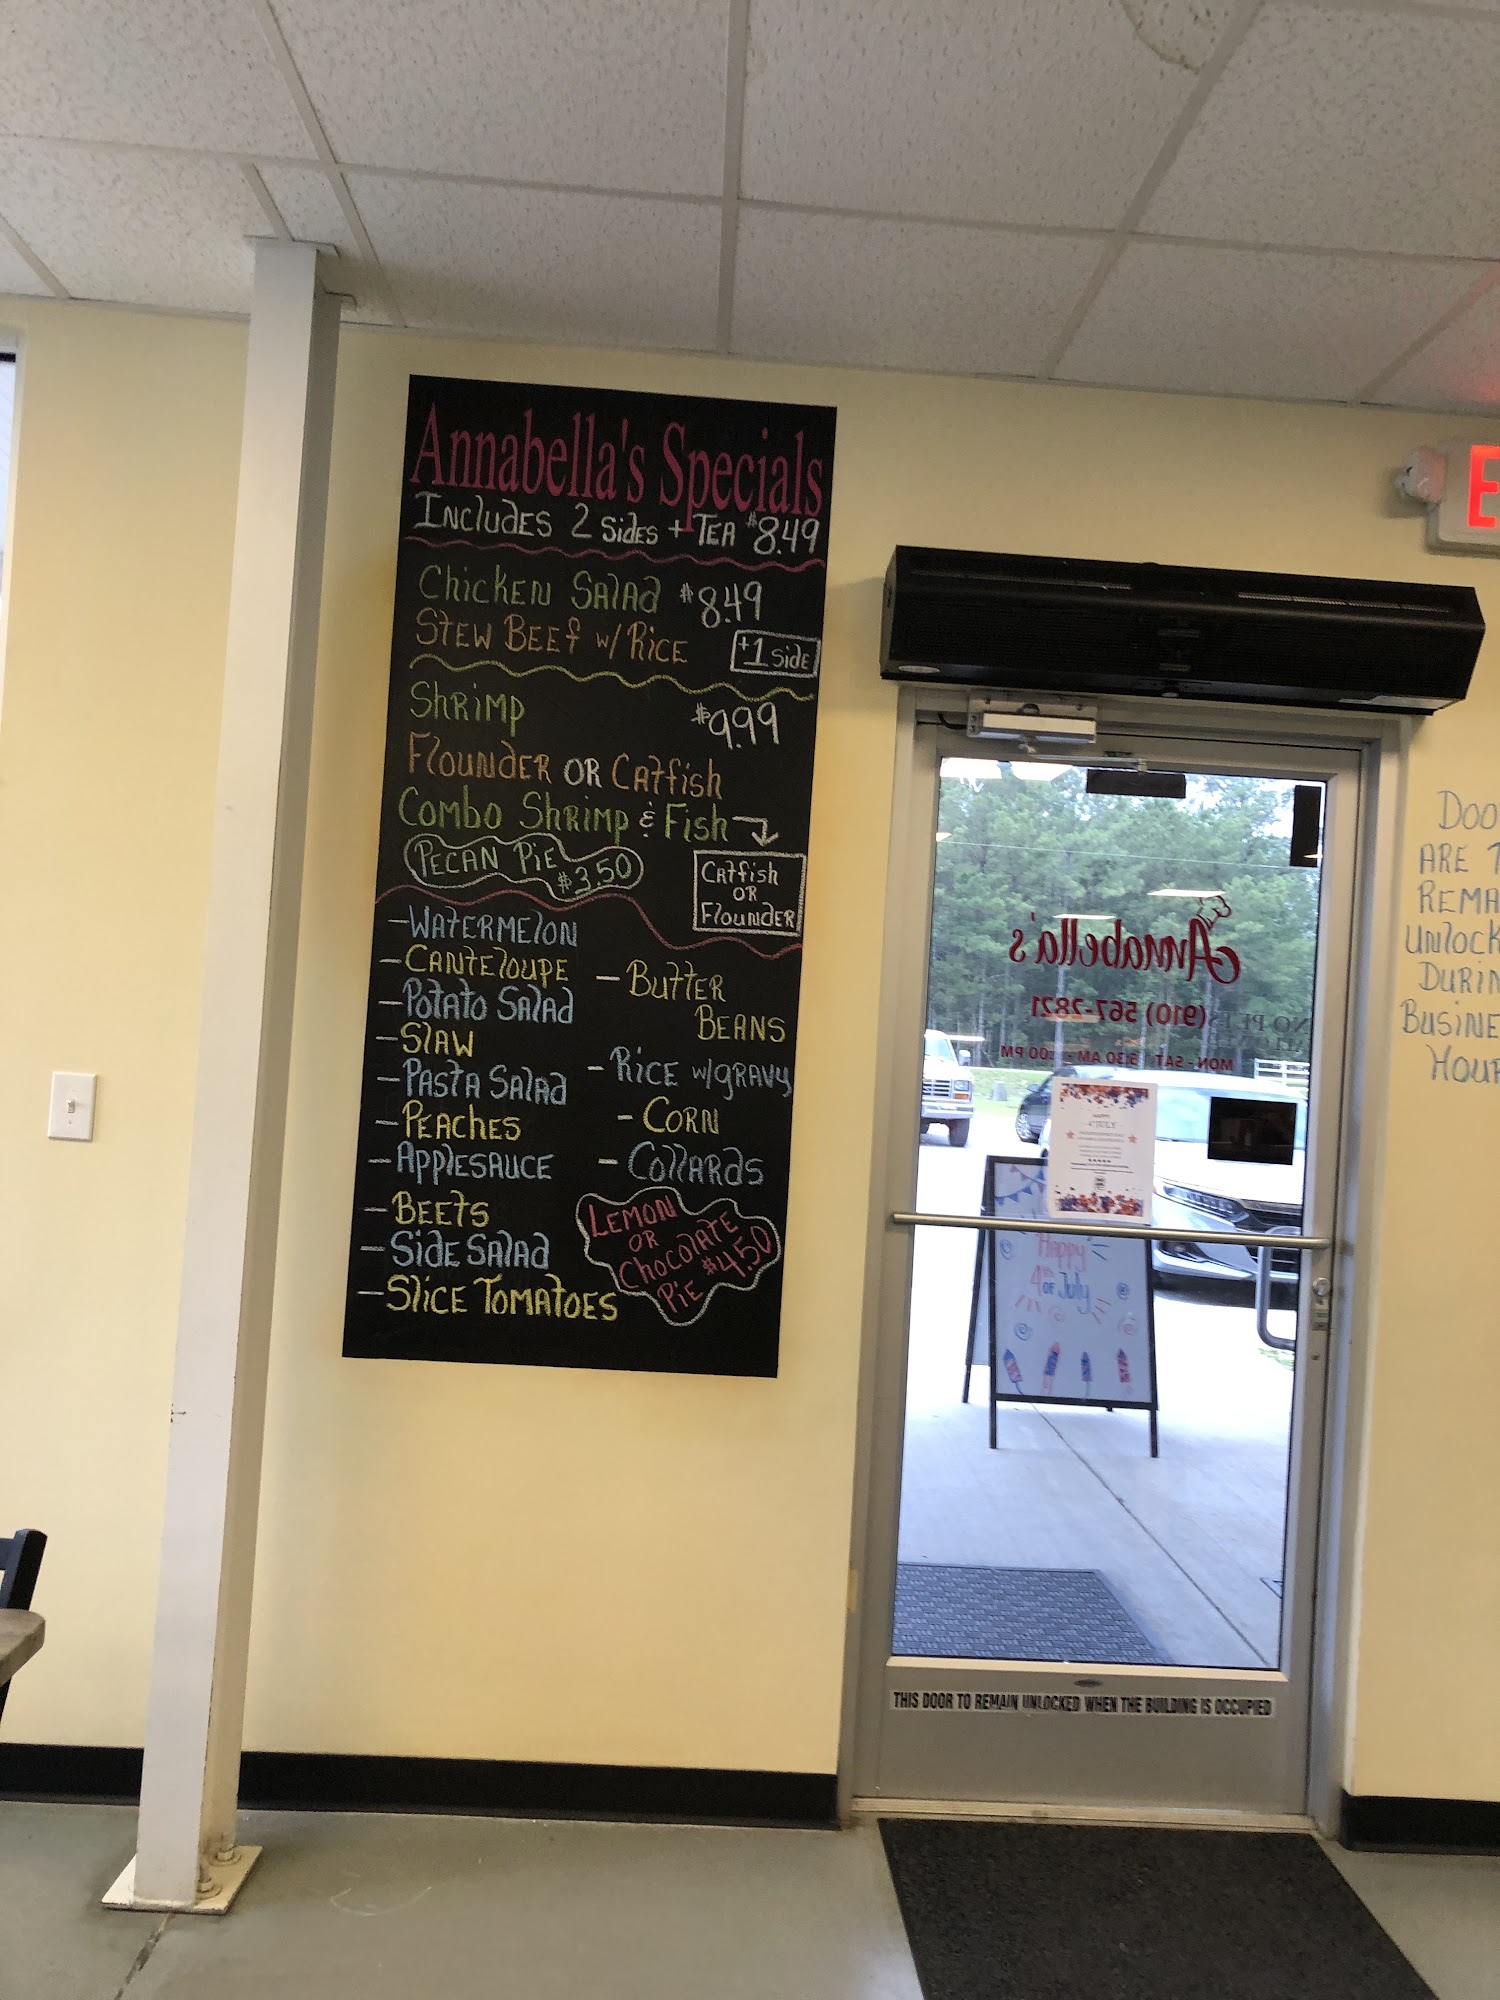 Annabella's Specials
Includes 2 Sides + Tea $8.49
Chicken Salad $8.49
Stew Beef w/ Rice +1 Side
Shrimp $9.99
Flounder or Catfish
Combo Shrimp & Fish
Catfish
or
Flounder
Pecan Pie
$3.50
-Watermelon
-Canteloupe
-Potato Salad
-Slaw
-Pasta Salad
-Peaches
-Applesauce
-Beets
-Side Salad
-Slice Tomatoes
-Butter
Beans
-Rice w/gravy
-Corn
-Collards
Lemon
or
Chocolate
Pie $4.50
Annabella's
(910) 567-2821
MON - SAT
HAPPY
4th JULY
Happy
4th
of July
THIS DOOR TO REMAIN UNLOCKED WHEN THE BUILDING IS OCCUPIED
E
Doo
are t
rema
unlock
durin
busine
hour